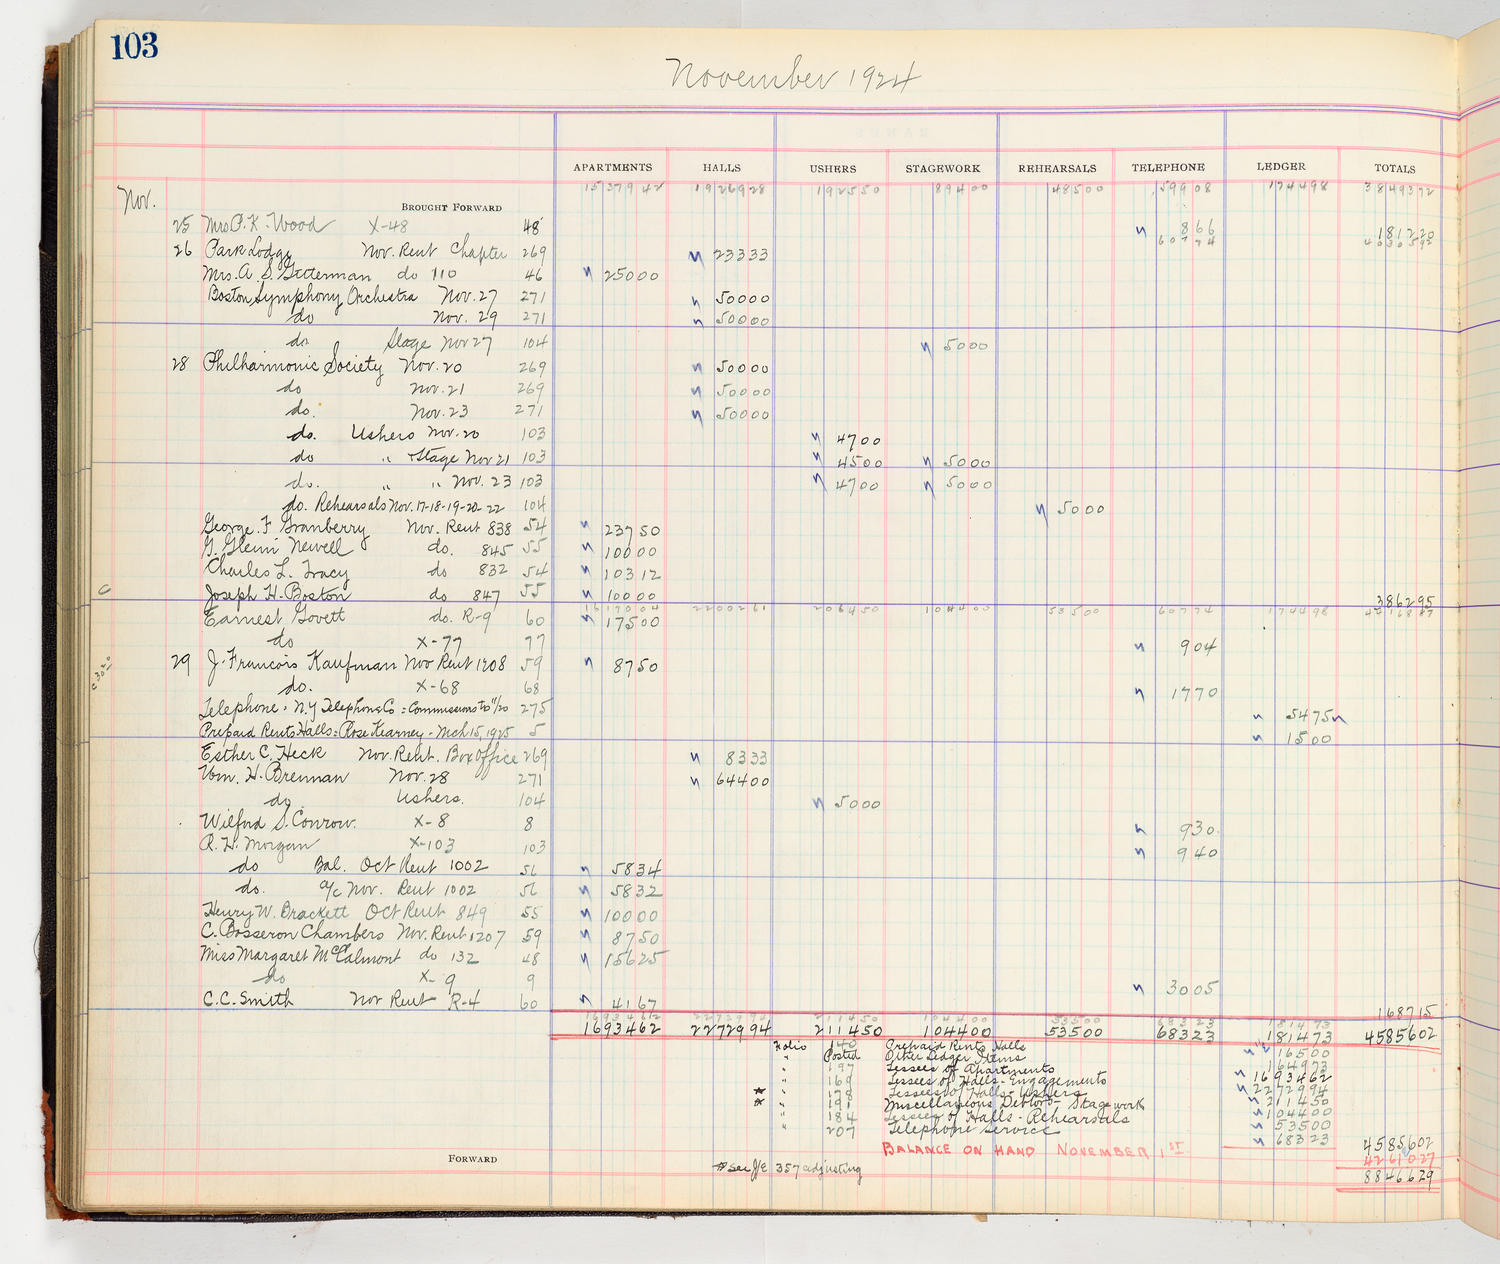 103
November 1924
APARTMENTS HALLS USHERS STAGEWORK REHEARSALS TELEPHONE LEDGER TOTALS
Nov. BROUGHT FORWARD 1537942 1926928 192550 89400 48500 59908 174498 3849372
25 Mrs P. K. Wood X-48 48 866 181220
60774 4030592
26 Park Lodge Nov. Rent Chapter 269 23333
Mrs. A. S. Gitterman do 110 46 25000
Boston Symphony Orchestra Nov. 27 271 50000
do Nov. 29 271 50000
do Stage Nov 27 104 5000
28 Philharmonic Society Nov. 20 269 50000
do Nov. 21 269 50000
do. Nov. 23 271 50000
do. Ushers Nov. 20 103 4700
do " Stage Nov 21 103 4500 5000
do. " " Nov. 23 103 4700 5000
do. Rehearsals Nov. 17-18-19-20-22 104 5000
George. F Granberry Nov. Rent 838 54 23750
G. Glenn Newell do. 845 55 10000
Charles L. Tracy do 832 54 10312
Joseph H. Boston do 847 55 10000 386295
1617004 2200261 206450 104400 53500 60774 174498 4416887
Earnest Govett do. R-9 60 17500
do X-77 77 904
29 J. Francois Kaufman Nov Rent 1208 59 8750
do. X-68 68 1770
Telephone = N.Y Telephone Co = Commissions to 11/20 275 5475
Prepaid Rents Halls = Rose Kearney - Mch 15, 1925 5 1500
Esther C. Heck Nov. Rent. Box Office 269 8333
Wm. H. Brennan Nov. 28 271 64400
do. Ushers. 104 5000
Wilford S. Conrow. X-8 8 930
R. H. Morgan X-103 103 940
do Bal. Oct Rent 1002 56 5834
do. a/c Nov. Rent 1002 56 5832
Henry W. Brackett Oct Rent 849 55 10000
C. Bosseron Chambers Nov. Rent 1207 59 8750
Miss Margaret McCalmont do 132 48 15625
do X-9 9 3005
C. C. Smith Nov Rent R-4 60 4167 168715
1693462 2272994 211450 104400 53500 68323 181473
1693462 2272994 211450 104400 53500 68323 181473 4585602
Folio 140 Prepaid Rents Halls 16500
" Posted Other Ledger Items 164973
" 197 Lessees of Apartments 1693462
" 169 Lessees of Halls - Engagements 2272994
" 178 Lessees of Halls - Ushers 211450
" 191 Miscellaneous Debtors - Stagework 104400
" 184 Lessees of Halls - Rehearsals 53500
" 207 Telephone Service 68323 4585602
BALANCE ON HAND NOVEMBER 1ST. 4261027
FORWARD see J/E 357 adjusting 8846629